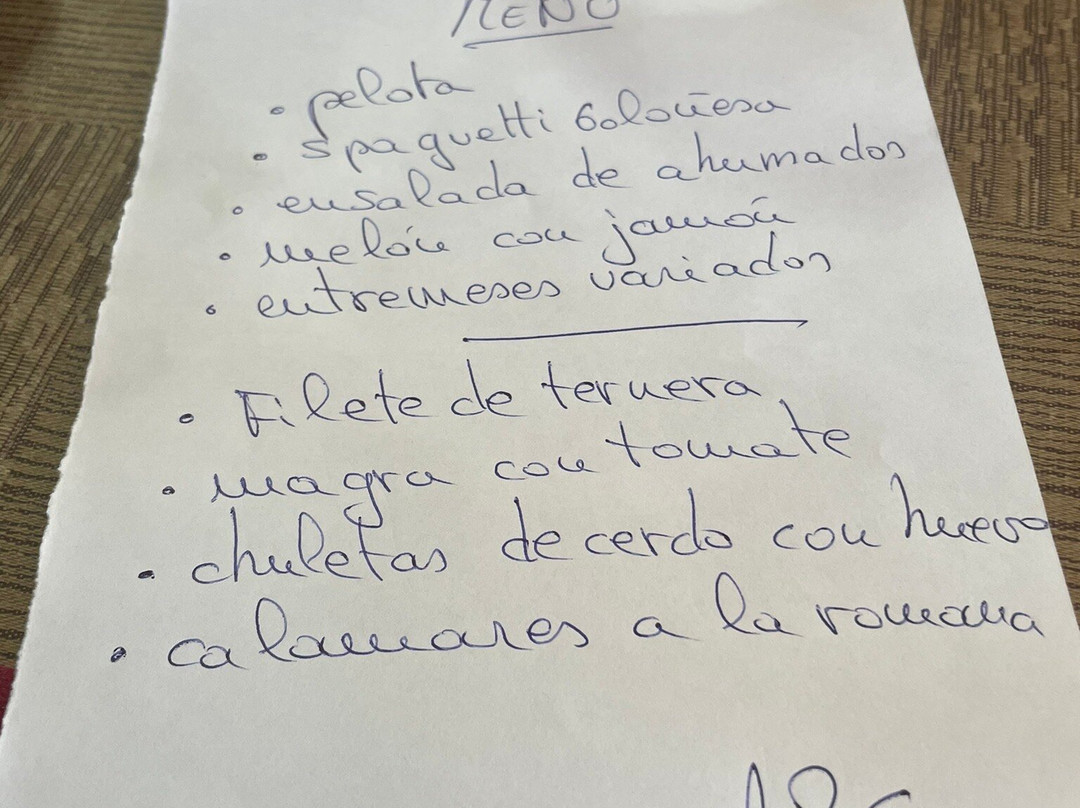 MENÚ
• pelota
• spaguetti boloñesa
• ensalada de ahumados
• melón con jamón
• entremeses variados
• Filete de ternera
• magra con tomate
• chuletas de cerdo con huevo
• calamares a la romana